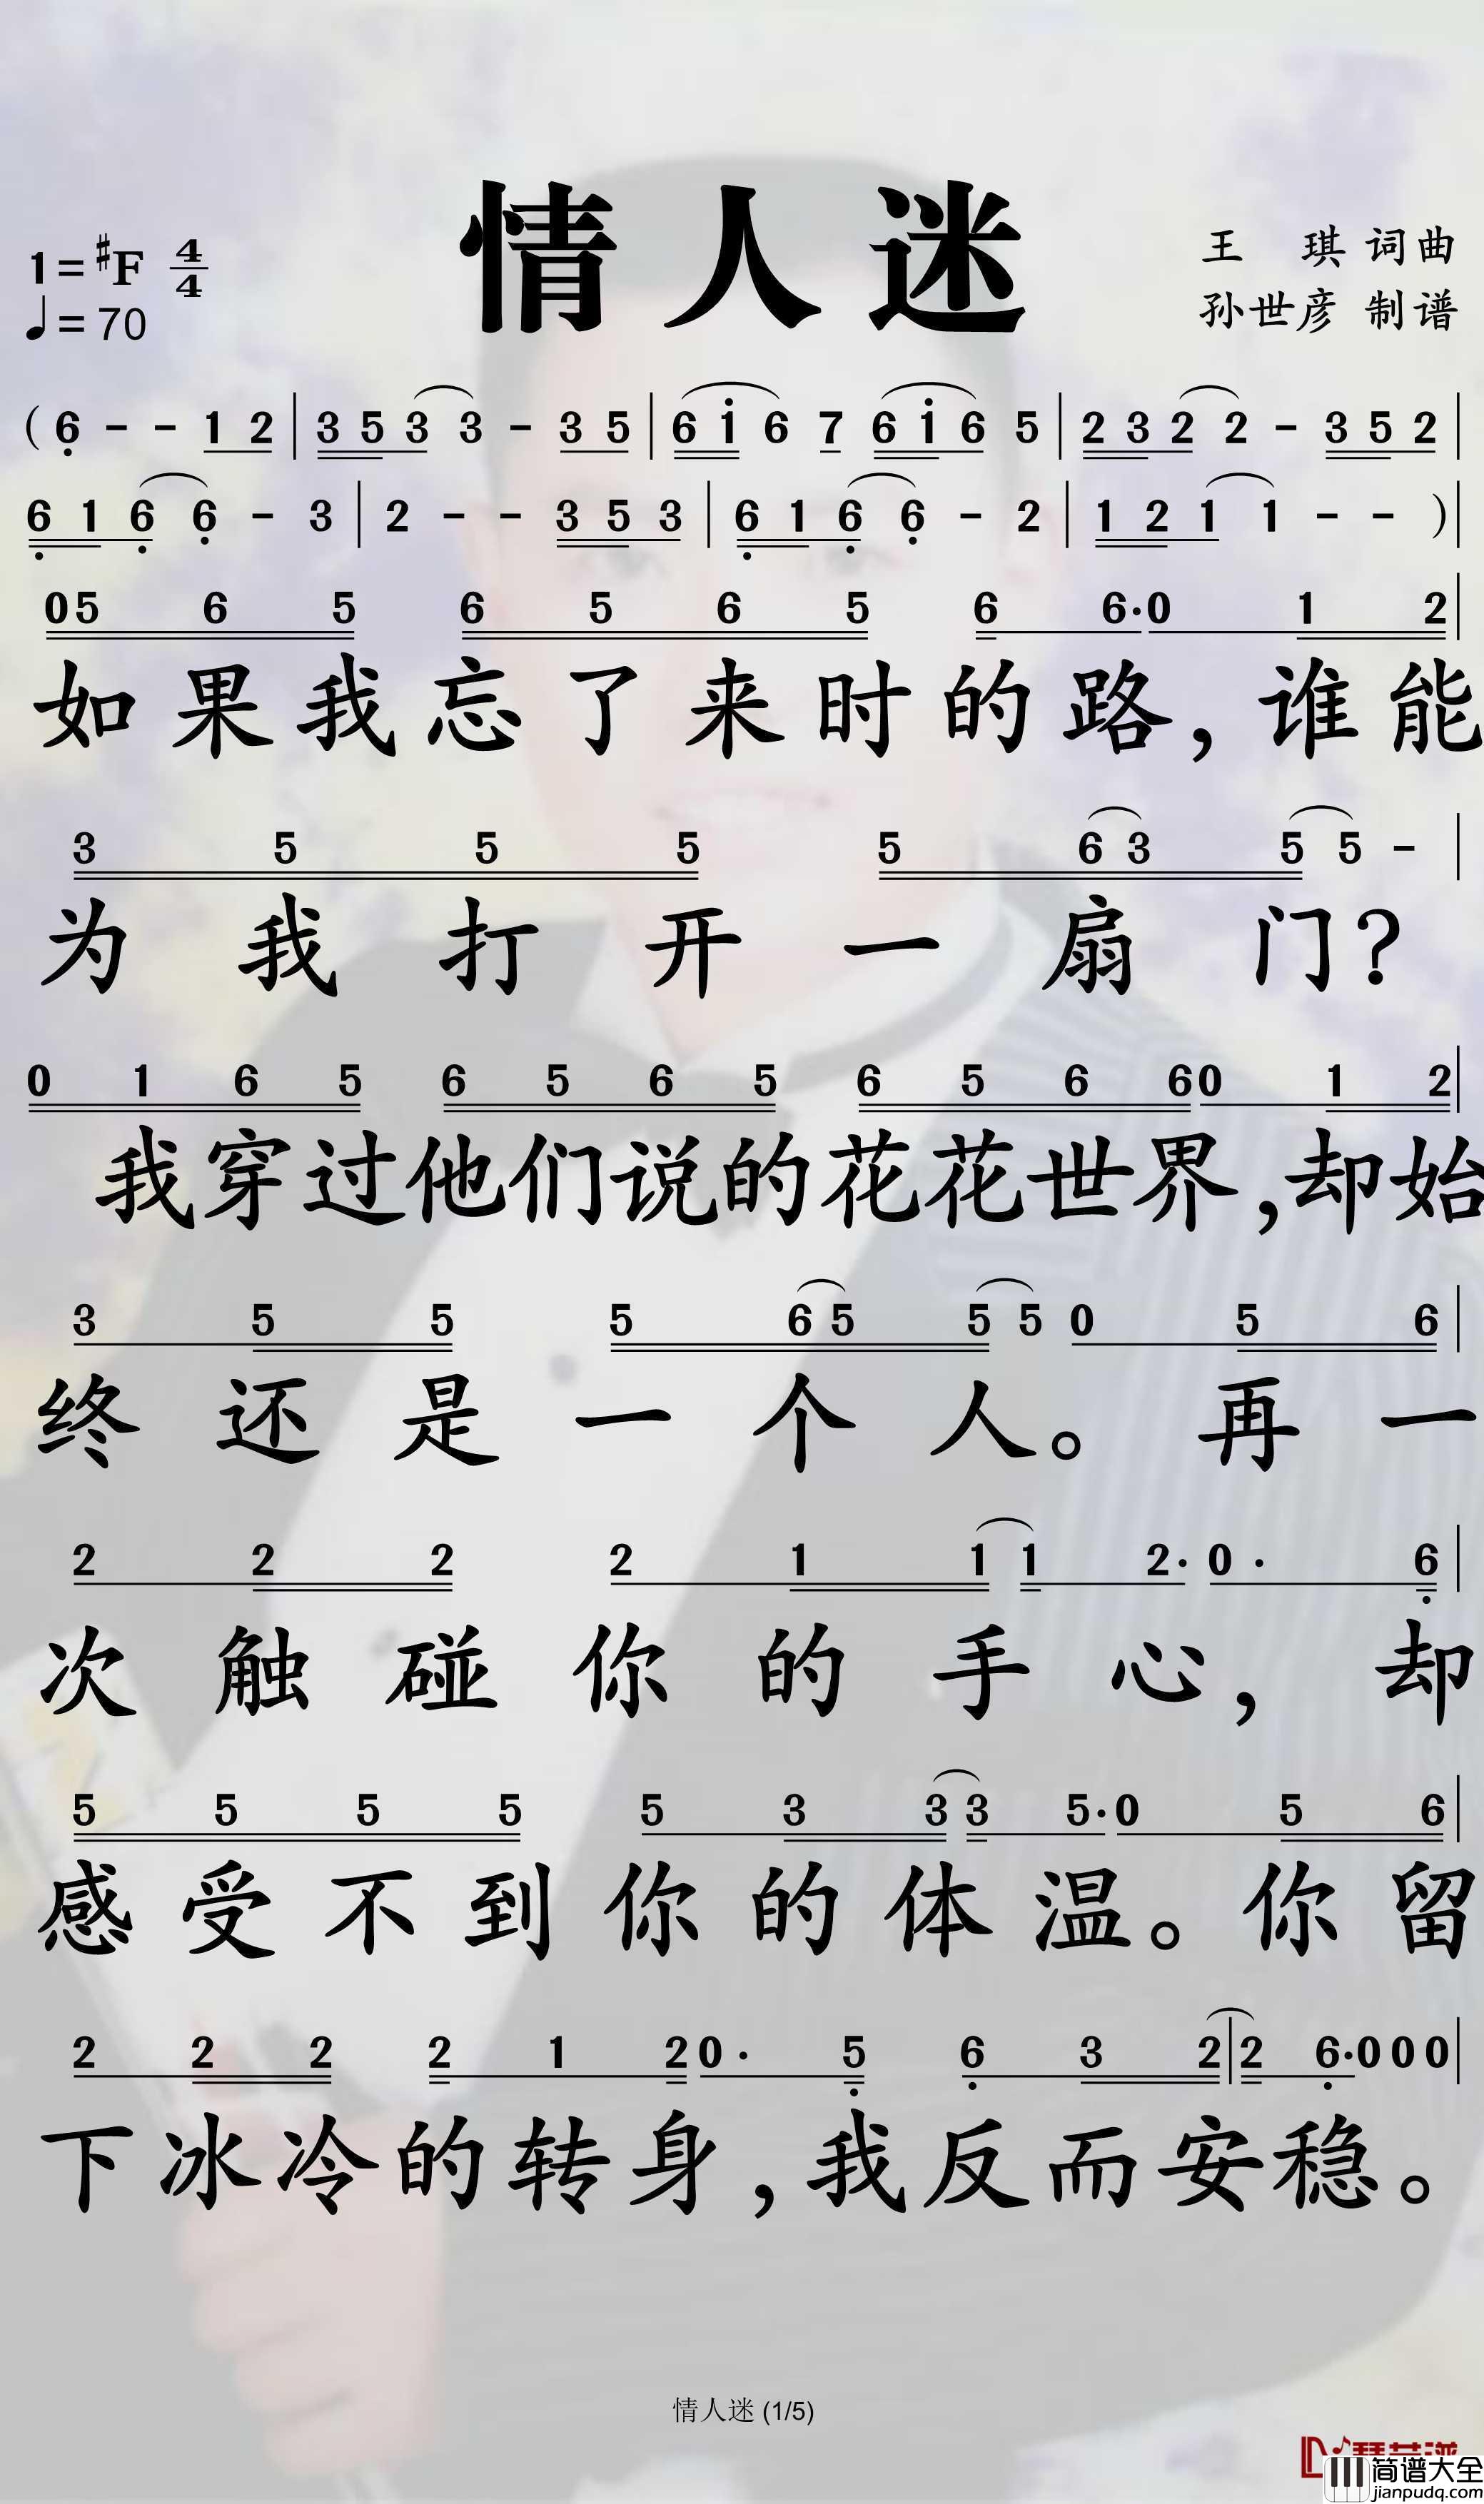 情人迷
1=#F 4/4
♩=70
王 琪 词曲
孙世彦 制谱
( 6 - - 1 2 | 3 5 3 3 - 3 5 | 6 i 6 7 6 i 6 5 | 2 3 2 2 - 3 5 2 |
6 1 6 6 - 3 | 2 - - 3 5 3 | 6 1 6 6 - 2 | 1 2 1 1 - - ) |
0 5 6 5 6 5 6 5 6 6· 0 1 2 |
如果我忘了来时的路，谁能
3 5 5 5 5 6 3 5 5 - |
为我打开一扇门？
0 1 6 5 6 5 6 5 6 5 6 6 0 1 2 |
我穿过他们说的花花世界，却始
3 5 5 5 6 5 5 5 0 5 6 |
终还是一个人。再一
2 2 2 2 1 1 1 2· 0· 6 |
次触碰你的手心，却
5 5 5 5 5 3 3 3 5· 0 5 6 |
感受不到你的体温。你留
2 2 2 2 1 2 0· 5 6 3 2 | 2 6· 0 0 0 |
下冰冷的转身，我反而安稳。
情人迷 (1/5)
简谱大全
jianpudq.com